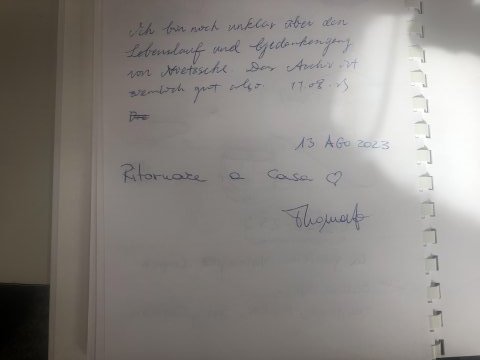 Ich bin noch unklar über den
Lebenslauf und Gedankengang
von Nietzsche. Das Archiv ist
ziemlich gut also. 11.08.
13 AGO 2023
Ritornare a casa ♡